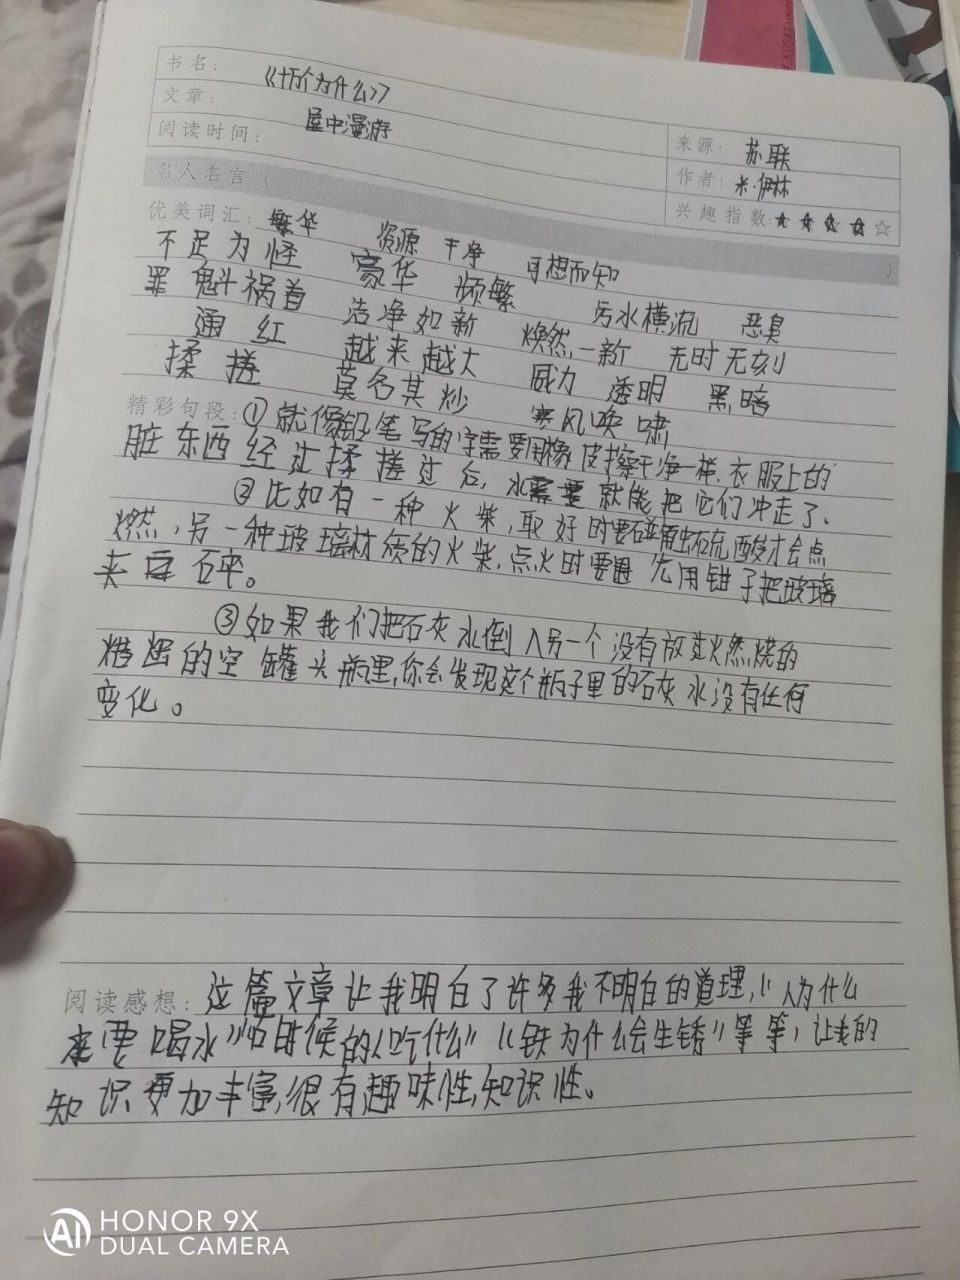 书名：《十万个为什么》
文章：屋中漫游
阅读时间：
来源：苏联
作者：米·伊林
兴趣指数：★★★★☆
名人名言（ ）
优美词汇：繁华 资源 干净 可想而知
不足为怪 豪华 频繁 污水横流 恶臭
罪魁祸首 洁净如新 焕然一新 无时无刻
通红 越来越大 威力 透明 黑暗
揉搓 莫名其炒 寒风唤啸
精彩句段：①就像铅笔写的字需要用橡皮擦干净一样，衣服上的
脏东西经过揉搓过后，水就能把它们冲走了。
②比如有一种火柴，取好时要石并硫酸才会点
燃，另一种玻璃材质的火柴，点火时要先用钳子把玻璃
夹碎。
③如果我们把石灰水倒入另一个没有放过火燃烧的
蜡烛的空罐头瓶里，你会发现这个瓶子里的石灰水没有任何
变化。
阅读感想：这篇文章让我明白了许多我不明白的道理，“人为什么
要喝水”“的时候的人吃什么”“铁为什么会生锈”等等，让我的
知识更加丰富，很有趣味性，知识性。
HONOR 9X
DUAL CAMERA